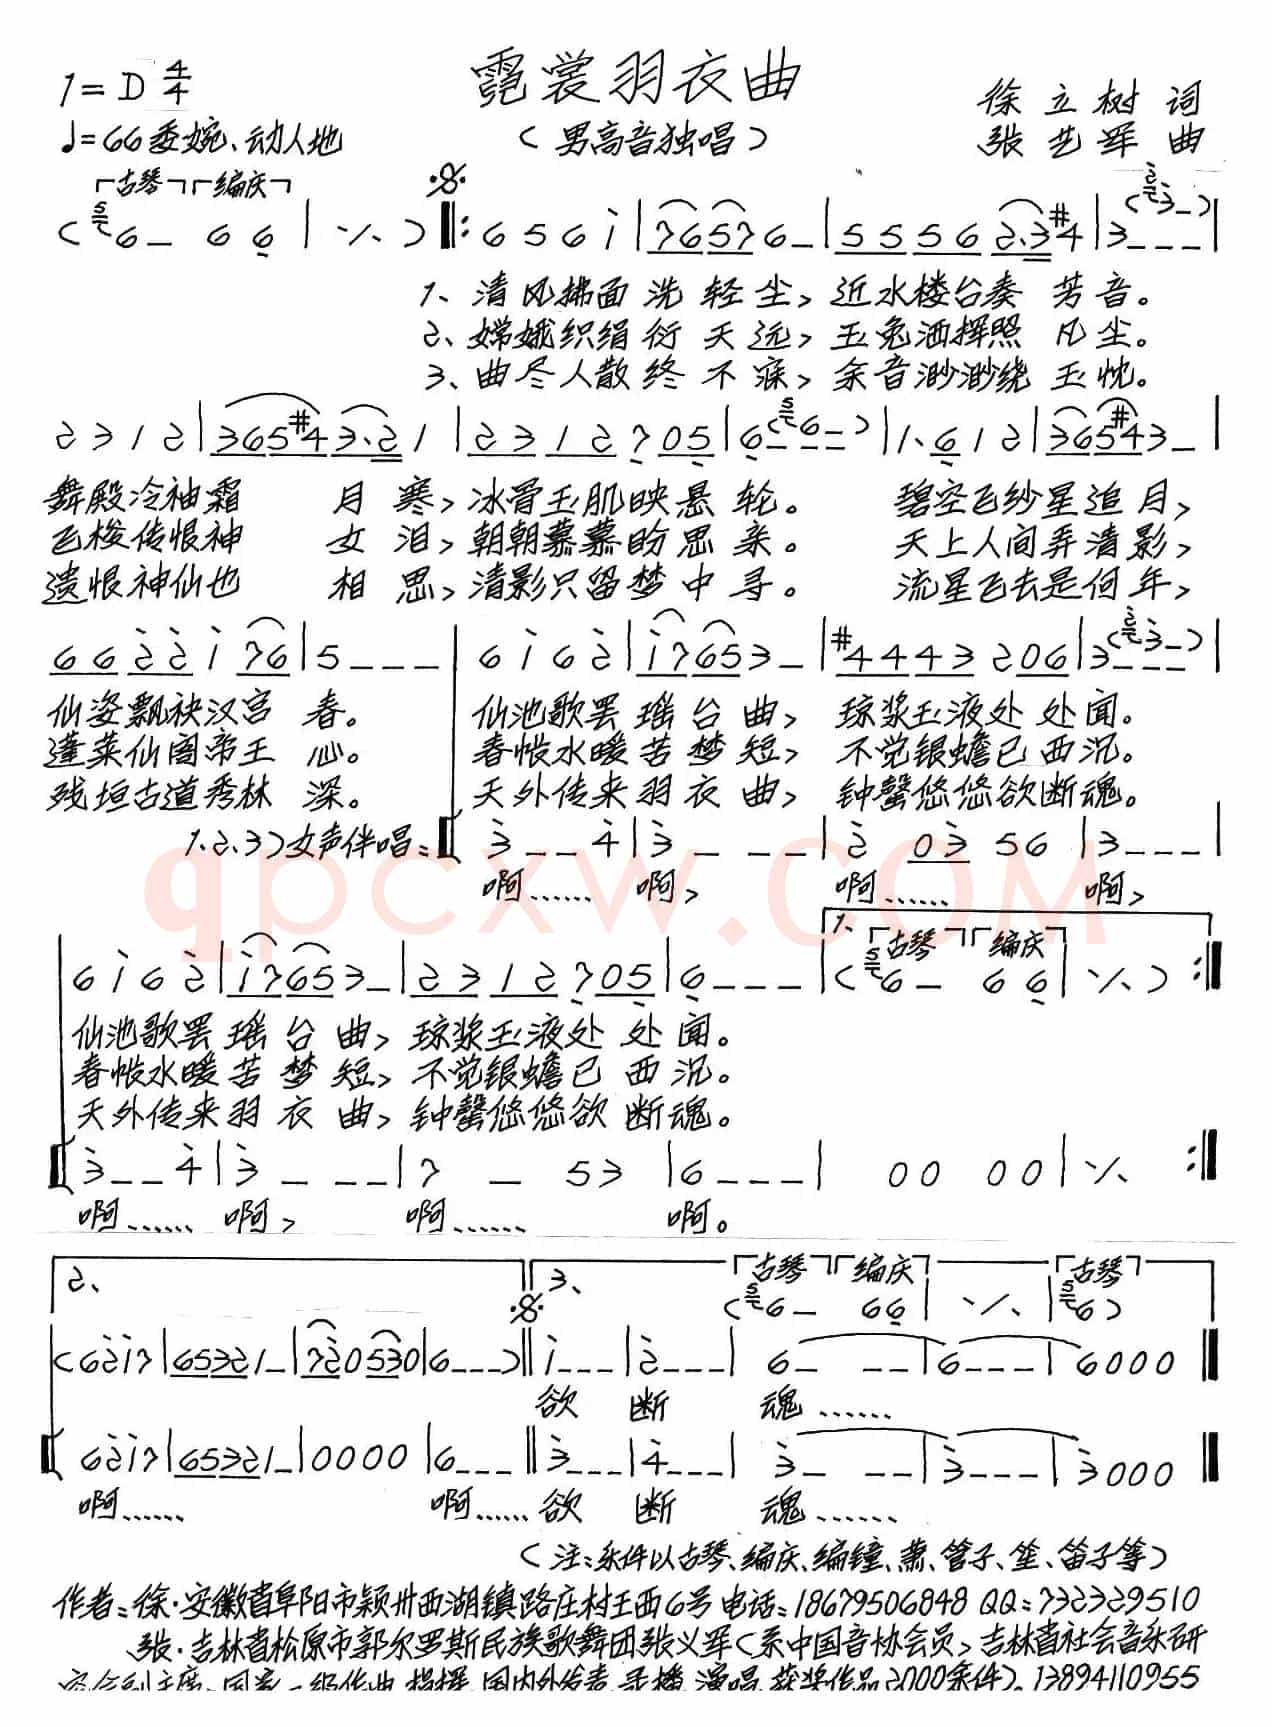 霓裳羽衣曲
1=D 4/4
徐立树 词
♩=66 委婉、动人地
(男高音独唱)
张艺军 曲
古琴 编庆
( 6 – 6 6 | ·/· ) ‖: 6 5 6 i | 7 6 5 7 6 – | 5 5 5 6 2·3 #4 | 3 – – – |
1、清风拂面洗轻尘, 近水楼台奏芳音。
2、嫦娥织绢衍天远, 玉兔洒挥照凡尘。
3、曲尽人散终不寐, 余音渺渺绕玉枕。
2 3 1 2 | 3 6 5 #4 3·2 1 | 2 3 1 2 7 0 5 | 6 – – – | 1·6 1 2 | 3 6 5 #4 3 – |
舞殿冷袖霜 月寒, 冰骨玉肌映悬轮。 碧空飞纱星追月,
飞梭传恨神 女泪, 朝朝慕慕盼思亲。 天上人间弄清影,
遗恨神仙也 相思, 清影只留梦中寻。 流星飞去是何年,
6 6 2 2 i 7 6 | 5 – – – | 6 i 6 2 | i 7 6 5 3 – | #4 4 4 3 2 0 6 | 3 – – – |
仙姿飘袂汉宫春。 仙池歌罢瑶台曲, 琼浆玉液处处闻。
蓬莱仙阁帝王心。 春帐水暖苦梦短, 不觉银蟾已西沉。
残垣古道秀林深。 天外传来羽衣曲, 钟罄悠悠欲断魂。
1.2.3)女声伴唱: 3 – – 4 | 3 – – – | 2 0 3 5 6 | 3 – – – |
啊…… 啊, 啊…… 啊,
1、 古琴 编庆
6 i 6 2 | i 7 6 5 3 – | 2 3 1 2 7 0 5 | 6 – – – | ( 6 – 6 6 | ·/· ) :‖
仙池歌罢瑶台曲, 琼浆玉液处处闻。
春帐水暖苦梦短, 不觉银蟾已西沉。
天外传来羽衣曲, 钟罄悠悠欲断魂。
3 – – 4 | 3 – – – | 7 – 5 3 | 6 – – – | 0 0 0 0 | ·/· :‖
啊…… 啊, 啊…… 啊。
2、 3、 古琴 编庆 古琴
( 6 – 6 6 | ·/· | 6 )
( 6 2 i 7 | 6 5 3 2 1 – | 7 2 0 5 3 0 | 6 – – – ) ‖ i – – – | 2 – – – | 6 – – – | 6 – – – | 6 0 0 0 ‖
欲 断 魂……
6 2 i 7 | 6 5 3 2 1 – | 0 0 0 0 | 6 – – – ‖ 3 – – – | 4 – – – | 3 – – – | 3 – – – | 3 0 0 0 ‖
啊…… 啊…… 欲 断 魂……
(注:乐件以古琴、编庆、编钟、萧、管子、笙、笛子等)
作者:徐·安徽省阜阳市颖州西湖镇路庄村王西6号 电话:18679506848 QQ:732329510
张·吉林省松原市郭尔罗斯民族歌舞团张义军(系中国音协会员,吉林省社会音乐研
究会副主席、国家一级作曲、指挥,国内外发表、录播、演唱、获奖作品2000余件)。13894110955
qpcxw.com